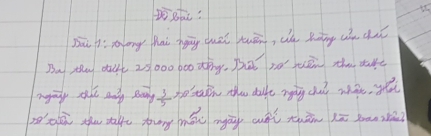 Đề bài:
Bài 1: trong hai ngày cuối tuần, cửa hàng của chú
Ba thu được 25 000 000 đồng. Biết số tiền thu được
ngày thứ bảy bằng số tiền thu được ngày chủ nhật. Hỏi
số tiền thu được trong mỗi ngày cuối tuần là bao nhiêu?